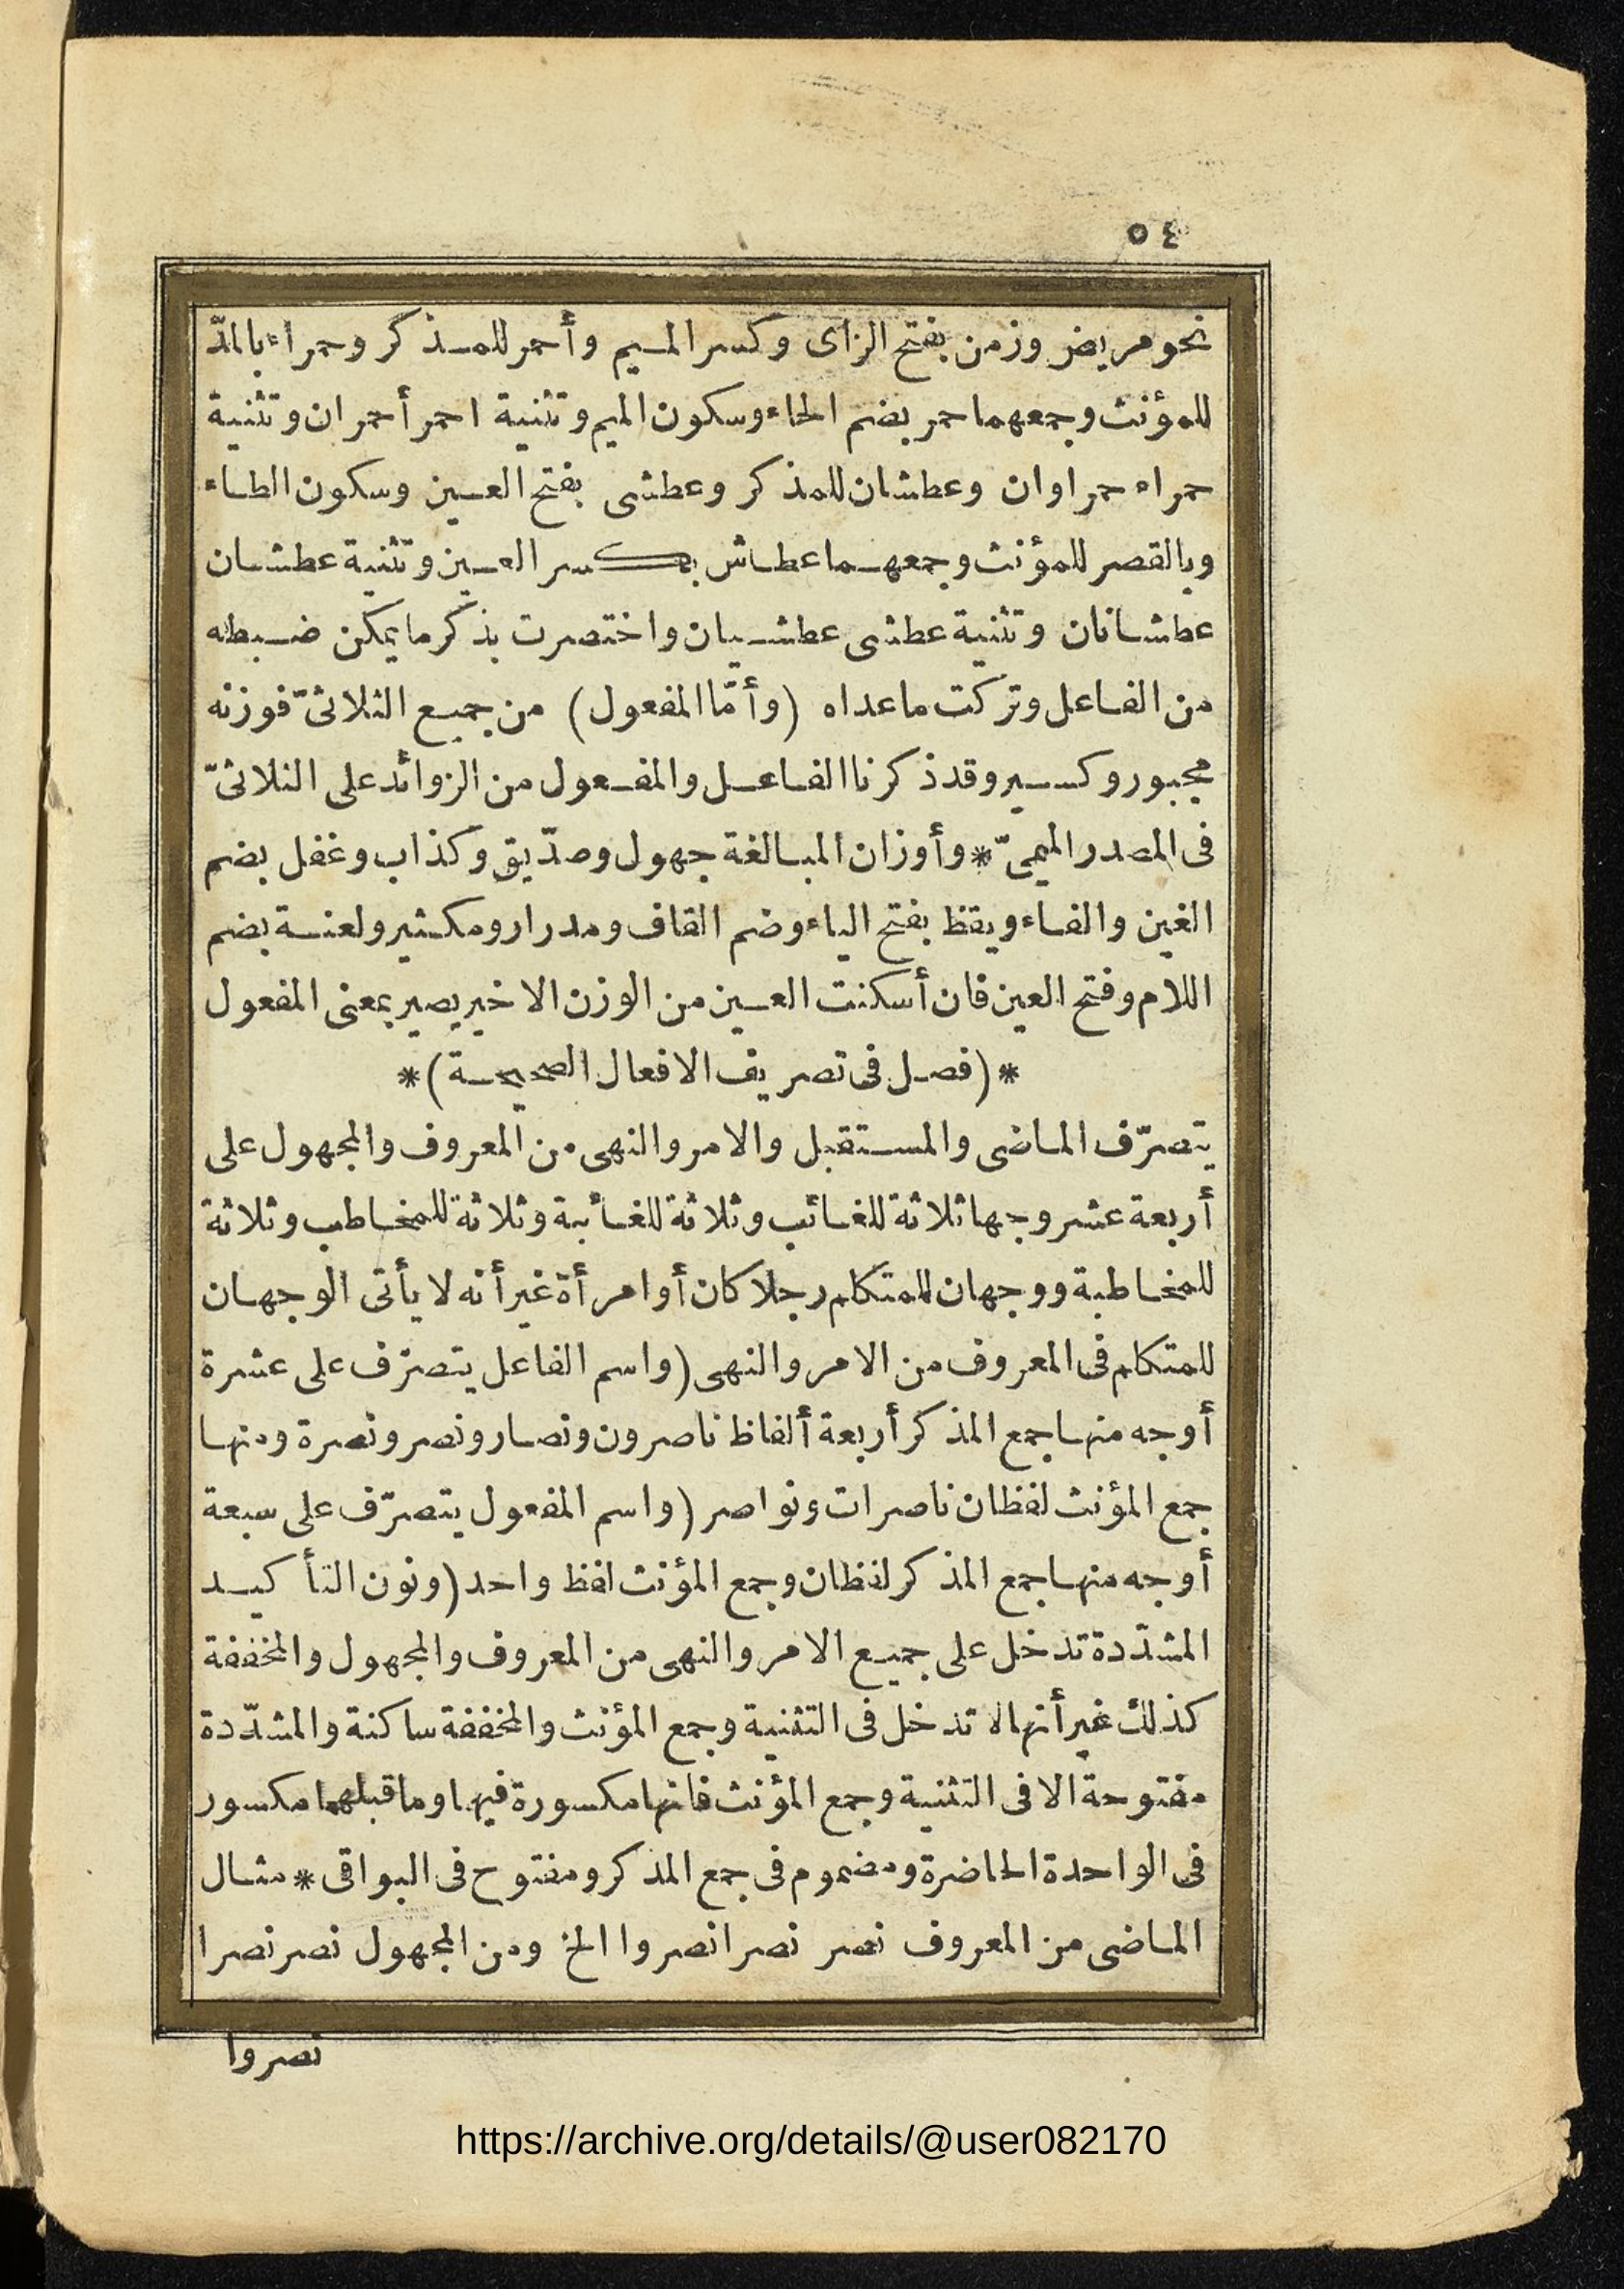 ٥٤
نحو مريض وزمن بفتح الزاى وكسر الميم وأحمر للمذكر وحمراء بالمدّ
للمؤنث وجمعهما حمر بضم الحاء وسكون الميم وتثنية احمر أحمران وتثنية
حمراء حمراوان وعطشان للمذكر وعطشى بفتح العين وسكون الطاء
وبالقصر للمؤنث وجمعهما عطاش بكسر العين وتثنية عطشان
عطشانان وتثنية عطشى عطشيان واختصرت بذكر ما يمكن ضبطه
من الفاعل وتركت ماعداه (وأمّا المفعول) من جميع الثلاثىّ فوزنه
مجبور وكسير وقد ذكرنا الفاعل والمفعول من الزوائد على الثلاثىّ
فى المصدر الميمىّ * وأوزان المبالغة جهول وصدّيق وكذاب وغفل بضم
الغين والفاء ويقظ بفتح الياء وضم القاف ومدرار ومكثير ولعنة بضم
اللام وفتح العين فان أسكنت العين من الوزن الاخير يصير بمعنى المفعول
* (فصل فى تصريف الافعال الصحيحة) *
يتصرّف الماضى والمستقبل والامر والنهى من المعروف والمجهول على
أربعة عشر وجها ثلاثة للغائب وثلاثة للغائبة وثلاثة للمخاطب وثلاثة
للمخاطبة ووجهان للمتكلم رجلا كان أو امرأة غير أنه لا يأتى الوجهان
للمتكلم فى المعروف من الامر والنهى (واسم الفاعل يتصرّف على عشرة
أوجه منها جمع المذكر أربعة ألفاظ ناصرون ونصار ونصر ونصرة ومنها
جمع المؤنث لفظان ناصرات ونواصر (واسم المفعول يتصرّف على سبعة
أوجه منها جمع المذكر لفظان وجمع المؤنث لفظ واحد (ونون التأكيد
المشدّدة تدخل على جميع الامر والنهى من المعروف والمجهول والمخففة
كذلك غير أنها لا تدخل فى التثنية وجمع المؤنث والمخففة ساكنة والمشدّدة
مفتوحة الا فى التثنية وجمع المؤنث فانها مكسورة فيها وما قبلهما مكسور
فى الواحدة الحاضرة ومضموم فى جمع المذكر ومفتوح فى البواقى * مثال
الماضى من المعروف نصر نصرا نصروا الخ ومن المجهول نصر نصرا
نصروا
https://archive.org/details/@user082170